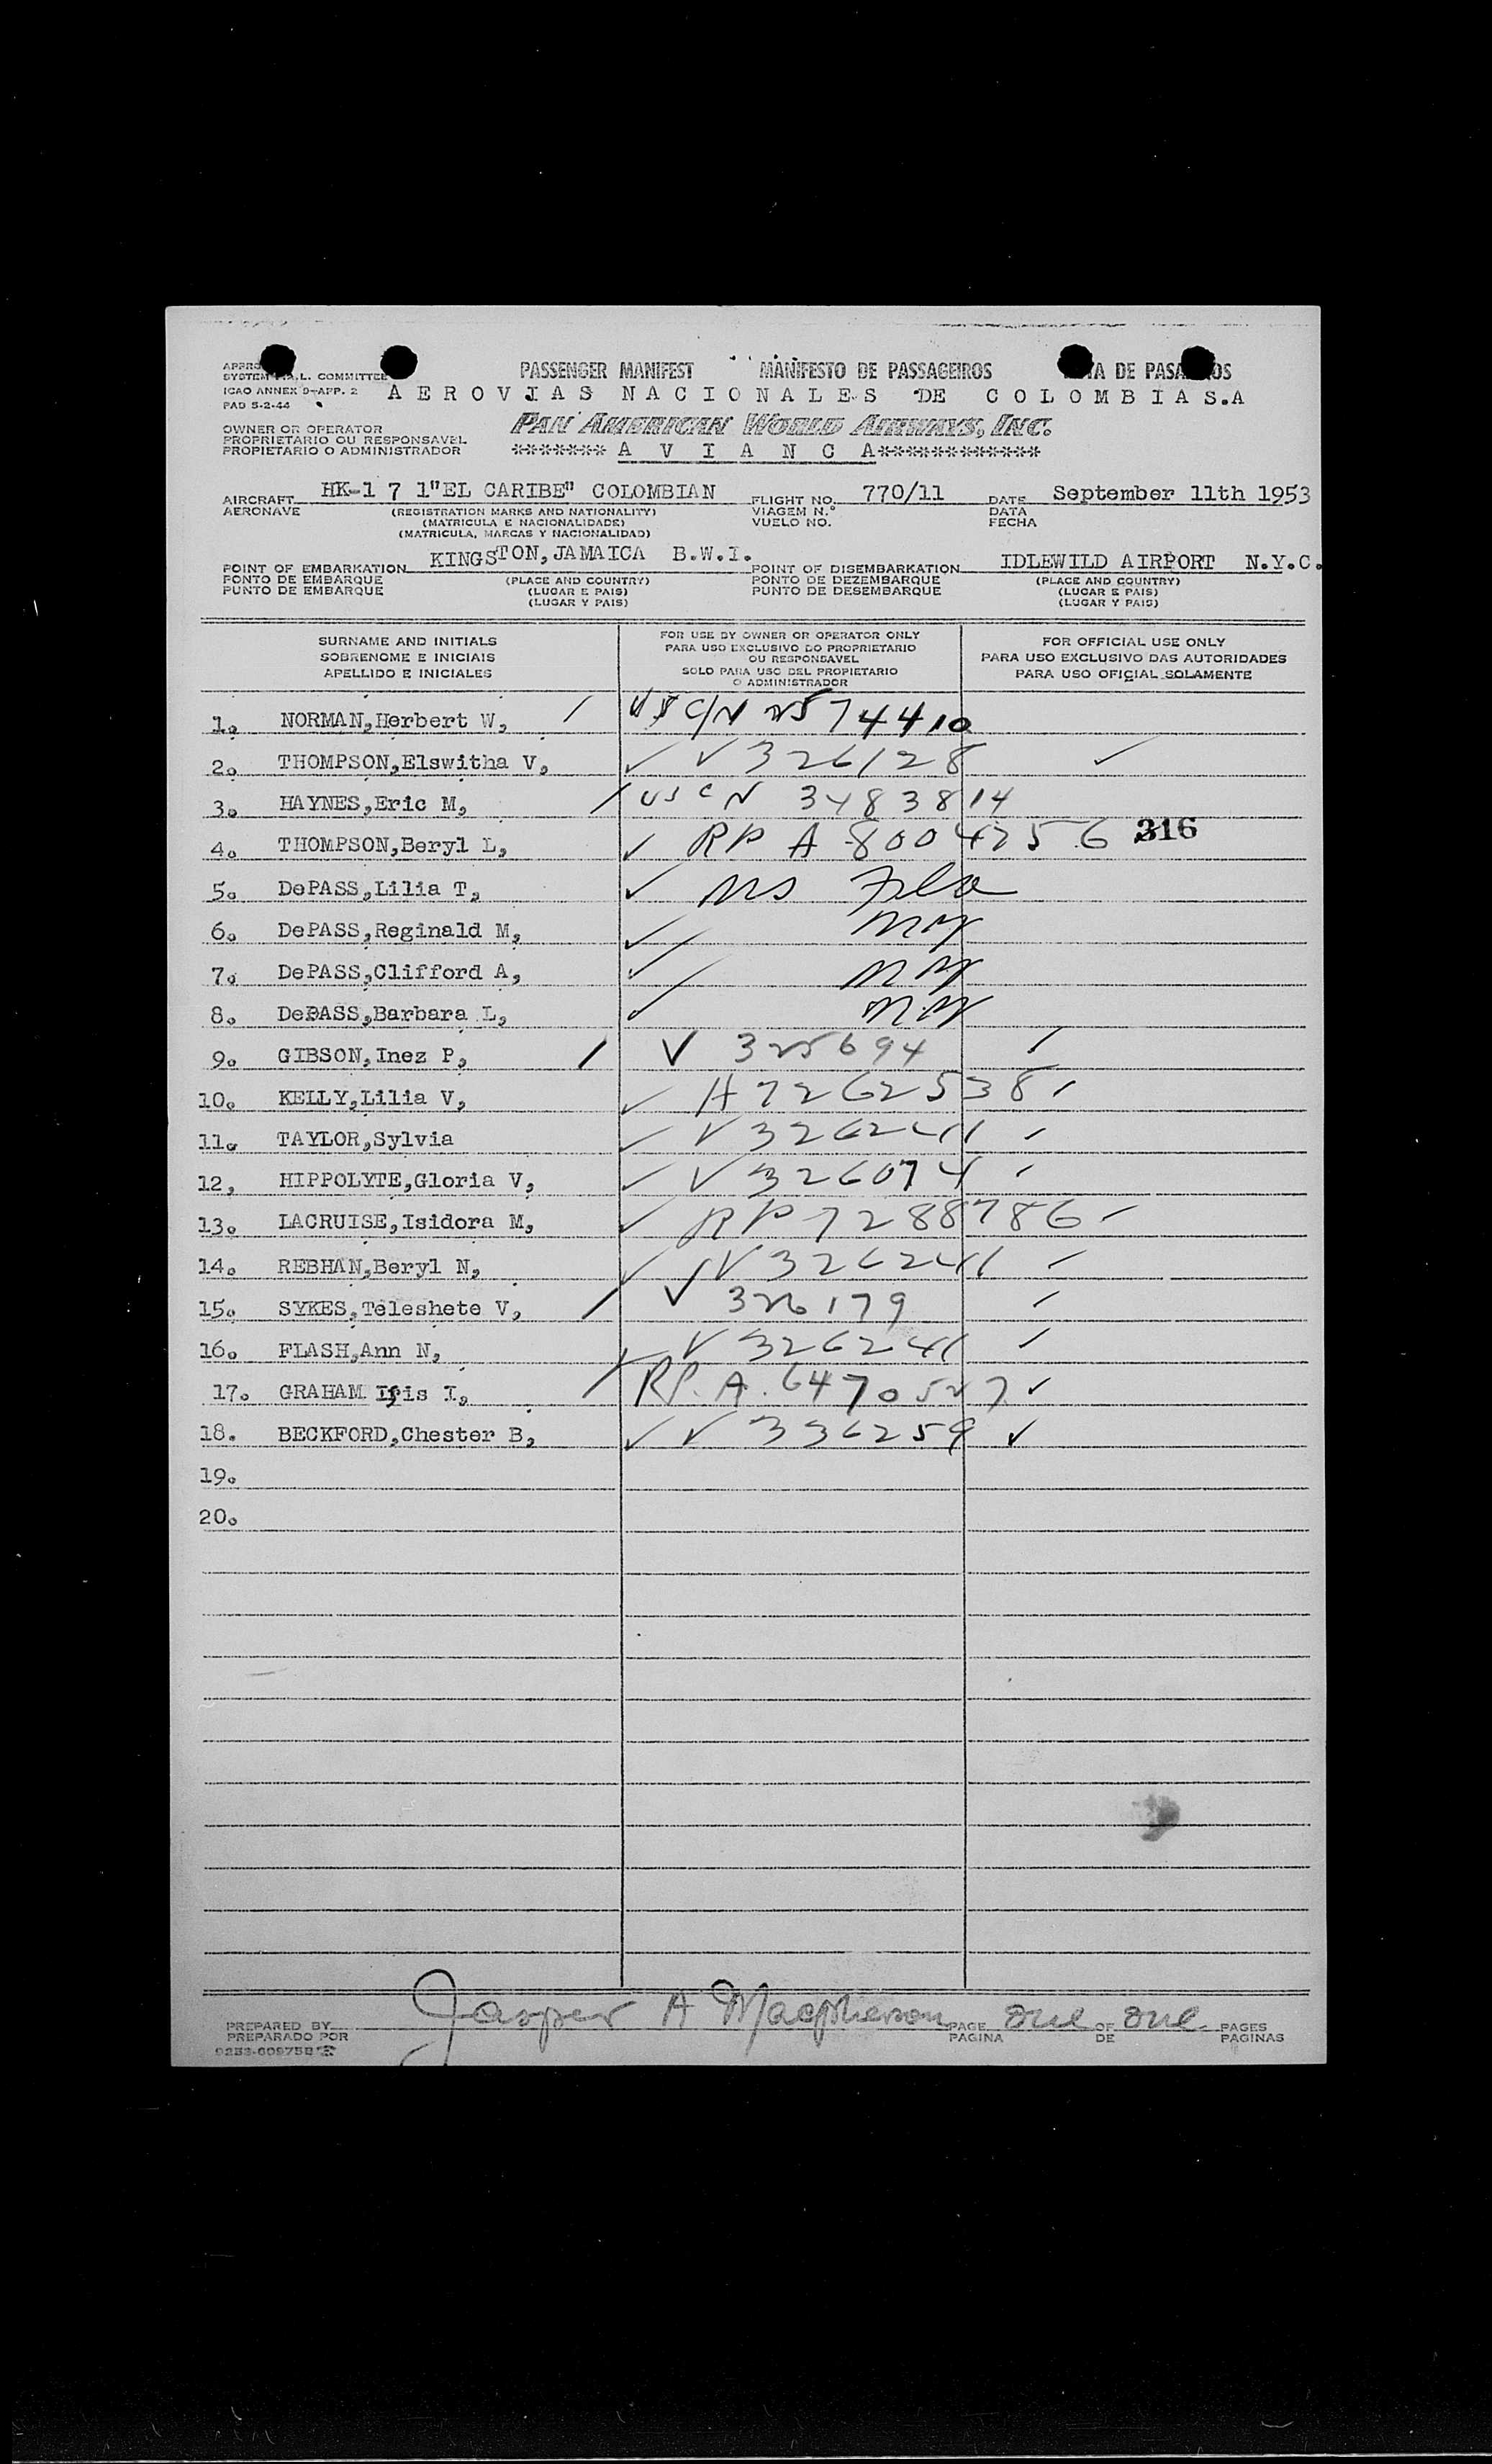 PASSENGER MANIFEST MANIFESTO DE PASSAGEIROS DE
SYSTEM L. COMMITTEE
ICAO ANNEX 9-APP. 2
PAD 5-2-44
AEROVIAS NACIONALES DE COLOMBIA S.A
PAN AMERICAN WORLD AIRWAYS, INC.
OWNER OR OPERATOR
PROPRIETARIO OU RESPONSAVEL
PROPIETARIO O ADMINISTRADOR
******* A V I A N C A************
AIRCRAFT HK-1 7 1"EL CARIBE" COLOMBIAN FLIGHT NO. 770/11 DATE September 11th 1953
AERONAVE (REGISTRATION MARKS AND NATIONALITY) VIAGEM N.º DATA
(MATRICULA E NACIONALIDADE) VUELO NO. FECHA
(MATRICULA, MARCAS Y NACIONALIDAD)
POINT OF EMBARKATION KINGSTON, JAMAICA B.W.I. POINT OF DISEMBARKATION IDLEWILD AIRPORT N.Y.C.
PONTO DE EMBARQUE (PLACE AND COUNTRY) PONTO DE DEZEMBARQUE (PLACE AND COUNTRY)
PUNTO DE EMBARQUE (LUGAR E PAIS) PUNTO DE DESEMBARQUE (LUGAR E PAIS)
(LUGAR Y PAIS) (LUGAR Y PAIS)
SURNAME AND INITIALS
SOBRENOME E INICIAIS
APELLIDO E INICIALES
FOR USE BY OWNER OR OPERATOR ONLY
PARA USO EXCLUSIVO DO PROPRIETARIO
OU RESPONSAVEL
SOLO PARA USO DEL PROPIETARIO
O ADMINISTRADOR
FOR OFFICIAL USE ONLY
PARA USO EXCLUSIVO DAS AUTORIDADES
PARA USO OFICIAL SOLAMENTE
1. NORMAN,Herbert W, US C/N 2574410
2. THOMPSON,Elswitha V, ✓ V 326128 ✓
3. HAYNES,Eric M, US C N 3483814
4. THOMPSON,Beryl L, ✓ RP A 8004256 316
5. DePASS,Lilia T, ✓
6. DePASS,Reginald M, ✓
7. DePASS,Clifford A, ✓
8. DePASS,Barbara L, ✓
9. GIBSON,Inez P, V 325694
10. KELLY,Lilia V, ✓ A7262538
11. TAYLOR,Sylvia ✓ V326241
12, HIPPOLYTE,Gloria V, ✓ V 326074
13. LACRUISE,Isidora M, ✓ RP 7288786
14. REBHAN,Beryl N, ✓ V326241
15. SYKES,Teleshete V, V 326179
16. FLASH,Ann N, V 326241
17. GRAHAM Iris I, RP. A. 6470527 ✓
18. BECKFORD,Chester B, ✓ V 336259 ✓
19.
20.
PREPARED BY Jasper A Macpherson PAGE one OF one PAGES
PREPARADO POR PAGINA DE PAGINAS